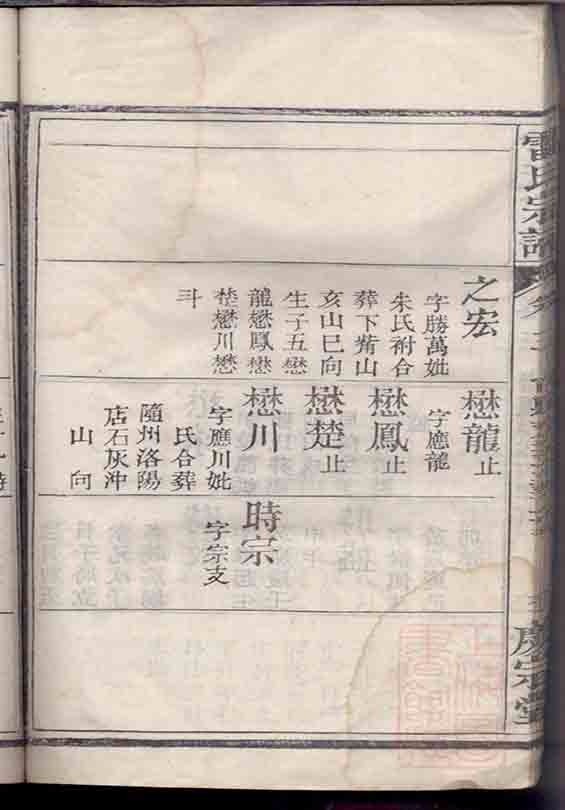 雷氏宗譜
之宏
字勝萬妣
朱氏祔合
葬下觜山
亥山巳向
生子五懋
龍懋鳳懋
楚懋川懋
斗
懋龍止
字應龍
懋鳳止
懋楚止
懋川
字應川妣
氏合葬
隨州洛陽
店石灰沖
山向
時宗
字宗支